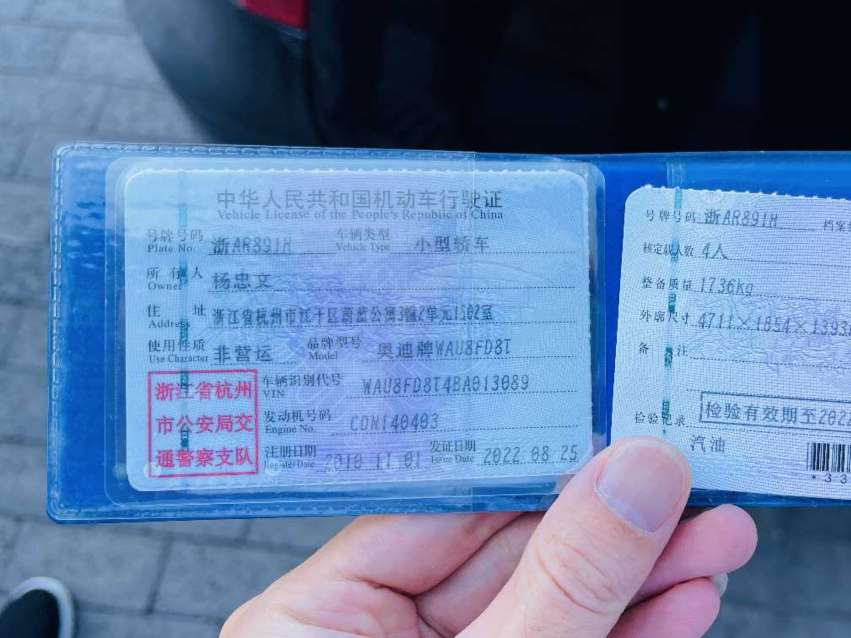 中华人民共和国机动车行驶证
Vehicle License of the People's Republic of China
号牌号码 浙AR891H 车辆类型 小型轿车
Plate No. Vehicle Type
所有人 杨忠文
Owner
住址 浙江省杭州市江干区蔚蓝公寓3幢2单元1502室
Address
使用性质 非营运 品牌型号 奥迪牌WAU8FD8T
Use Character Model
浙江省杭州
市公安局交
通警察支队
车辆识别代号 WAU8FD8T4BA013089
VIN
发动机号码 CDN140403
Engine No.
注册日期 2010 11 01 发证日期 2022 08 25
Register Date Issue Date
号牌号码 浙AR891H 档案
核定载人数 4人
整备质量 1736kg
外廓尺寸 4711×1854×1393
备注
检验有效期至2022
检验记录
汽油
*33